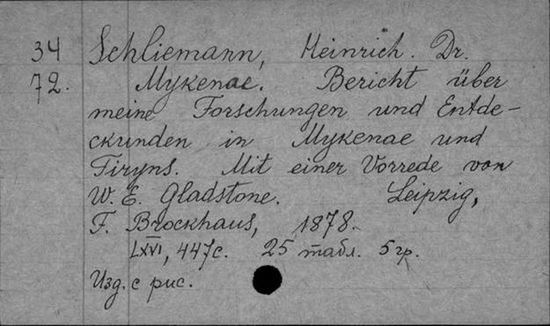 34 Schliemann, Heinrich. Dr.
72. Mykenae. Bericht über
meine Forschungen und Entde-
ckunden in Mykenae und
Tiryns. Mit einer Vorrede von
W. E. Gladstone. Leipzig,
F. Brockhaus, 1878.
LXVI, 447с. 25 табл. 5 гр.
Изд. с рис.